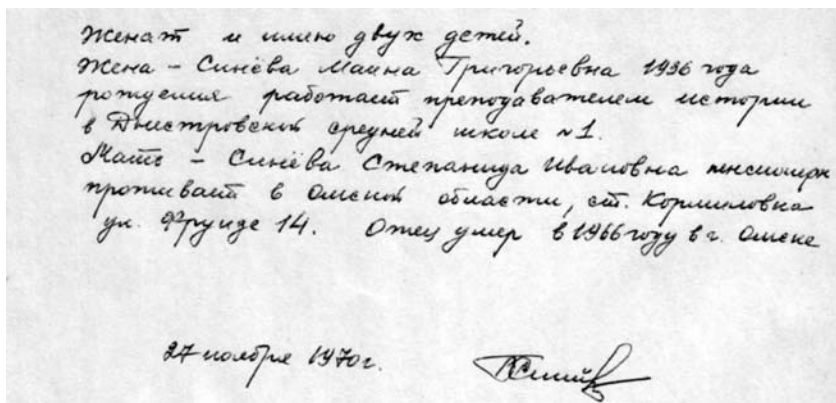 Женат и имею двух детей.
Жена – Синёва Маина Григорьевна 1936 года
рождения работает преподавателем истории
в Днестровской средней школе №1.
Мать – Синёва Степанида Ивановна пенсионерк
проживает в Омской области, ст. Кормиловка
ул. Фрунзе 14. Отец умер в 1966 году в г. Омске
27 ноября 1970г.